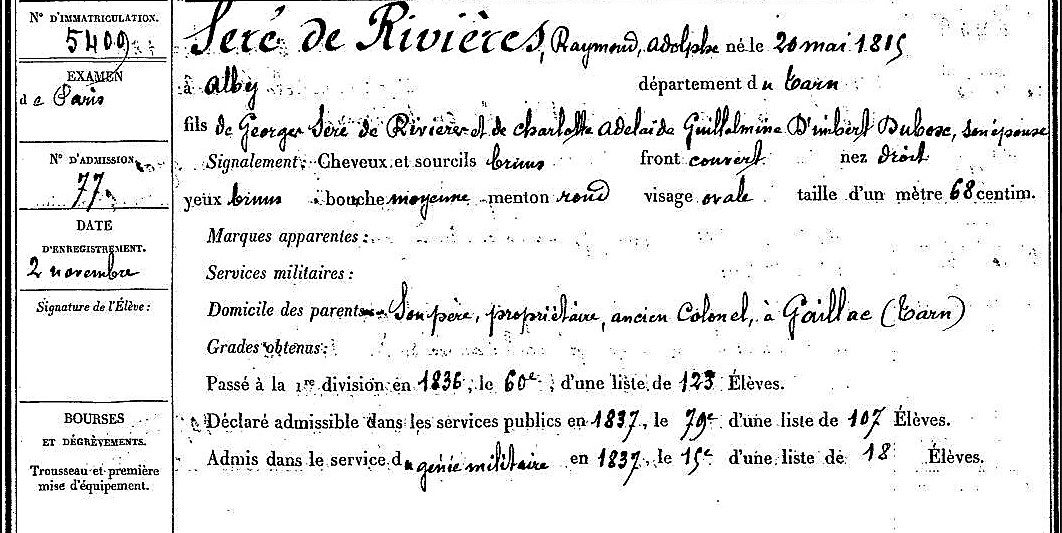 N° D'IMMATRICULATION.
5409
EXAMEN
de Paris
N° D'ADMISSION
77
DATE
D'ENREGISTREMENT.
2 novembre
Signature de l'Élève :
BOURSES
ET DÉGRÈVEMENTS.
Trousseau et première
mise d'équipement.
Seré de Rivières, Raymond, Adolphe né le 20 mai 1815
à Alby département du Tarn
fils de Georges Seré de Rivières et de Charlotte Adelaïde Guillelmine D'imbert Dubosc, son épouse
Signalement : Cheveux et sourcils bruns front couvert nez droit
yeux bruns bouche moyenne menton rond visage ovale taille d'un mètre 68 centim.
Marques apparentes :
Services militaires :
Domicile des parents Son père, propriétaire, ancien Colonel, à Gaillac (Tarn)
Grades obtenus :
Passé à la 1re division en 1836, le 60e, d'une liste de 123 Élèves.
Déclaré admissible dans les services publics en 1837, le 79e d'une liste de 107 Élèves.
Admis dans le service du génie militaire en 1837, le 15e d'une liste de 18 Élèves.